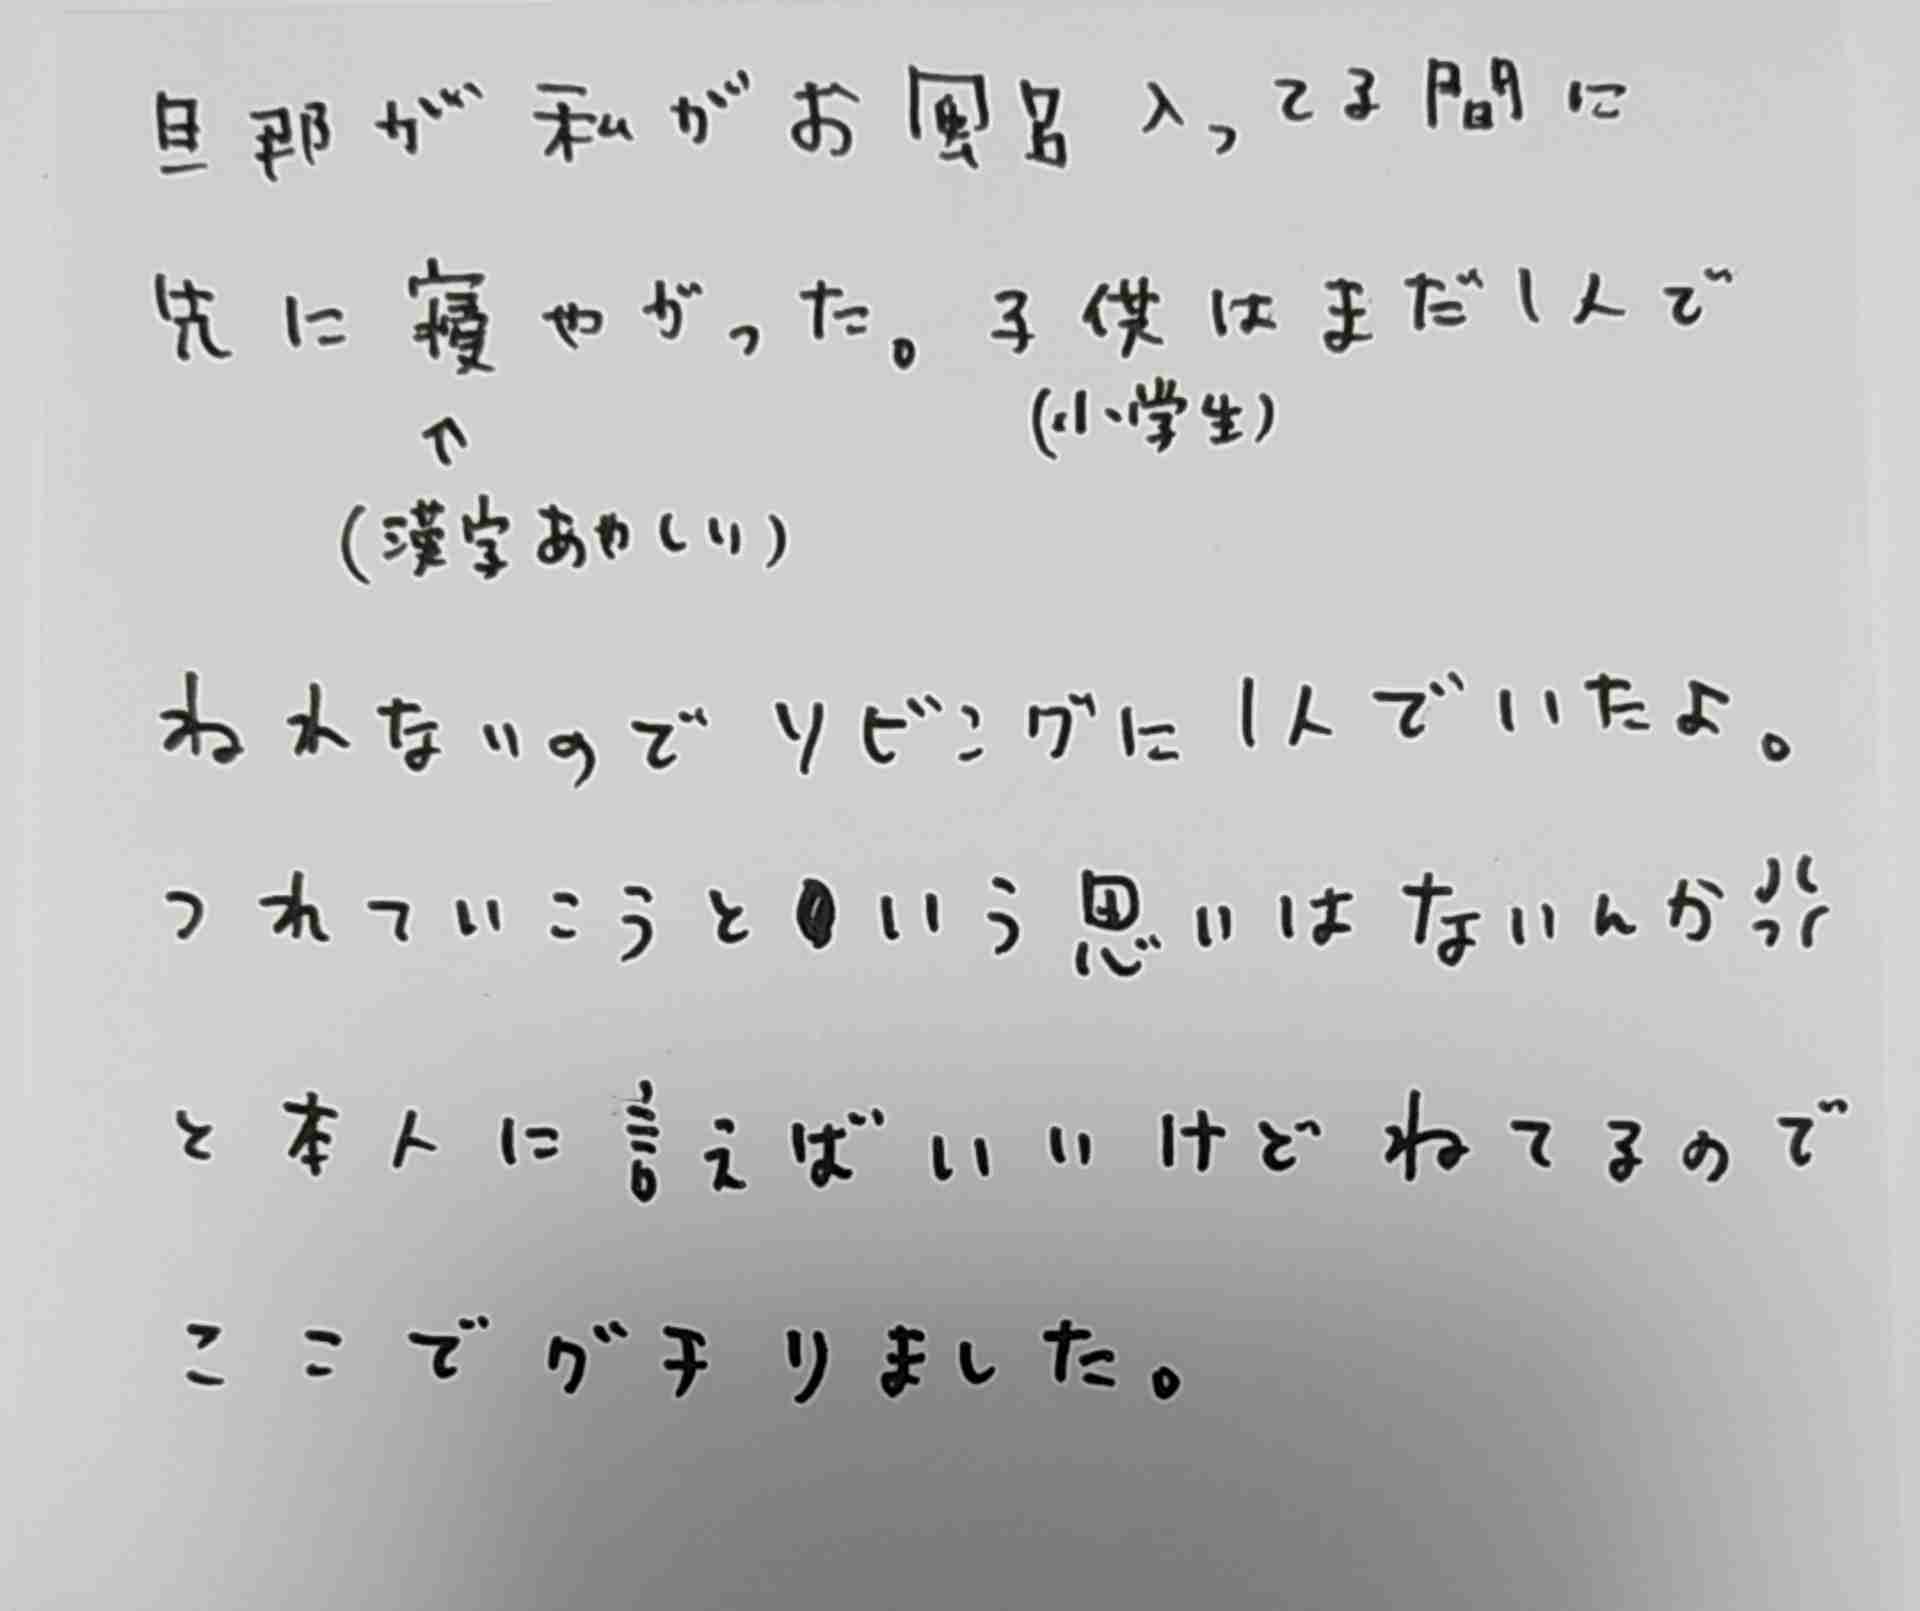 旦那が私がお風呂入ってる間に
先に寝やがった。子供はまだ1人で
(小学生)
↑
(漢字あやしい)
ねれないのでリビングに1人でいたよ。
つれていこうという思いはないんか💢
と本人に言えばいいけどねてるので
ここでグチりました。